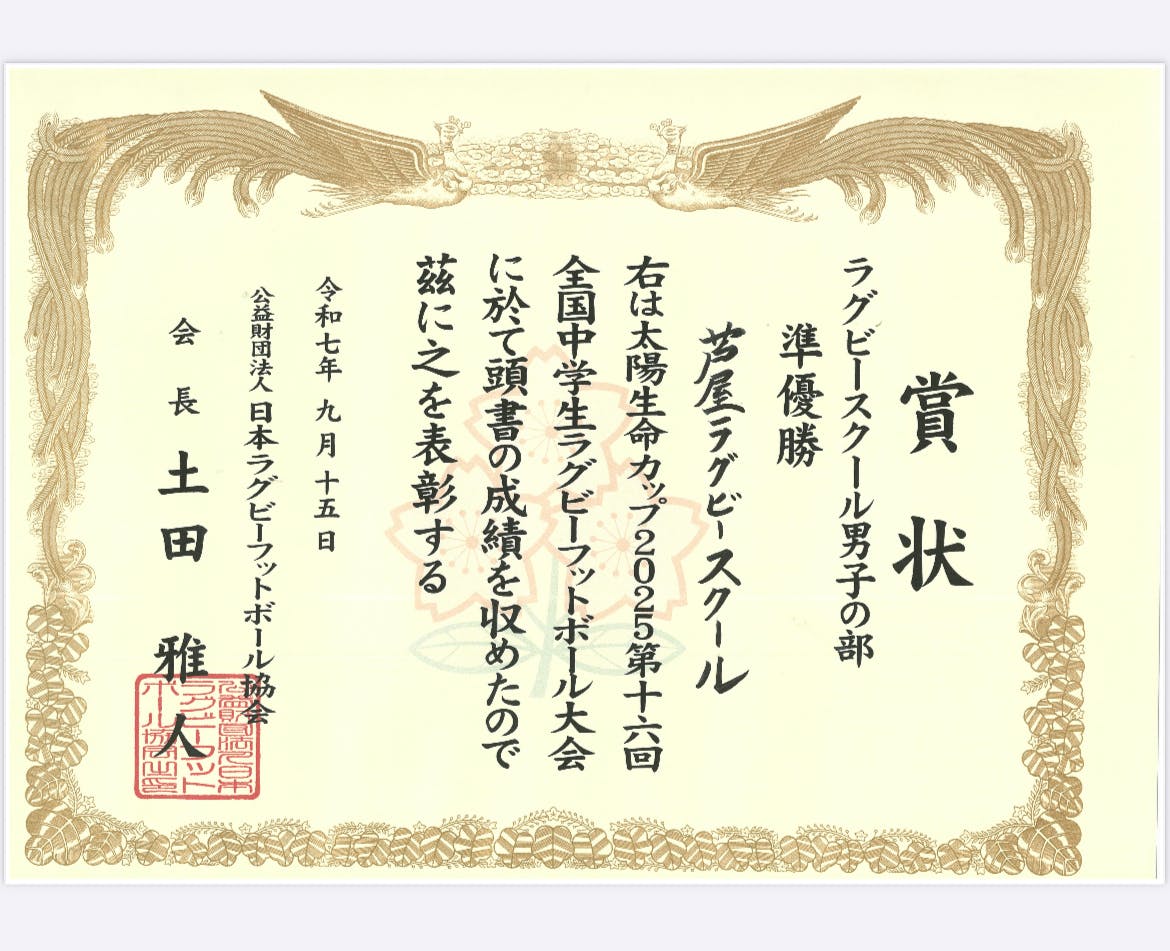 賞状
ラグビースクール男子の部
準優勝
芦屋ラグビースクール
右は太陽生命カップ2025第十六回
全国中学生ラグビーフットボール大会
に於て頭書の成績を収めたので
茲に之を表彰する
令和七年九月十五日
公益財団法人日本ラグビーフットボール協会
会長土田雅人
公益財団法人日本
ラグビーフット
ボール協会之印